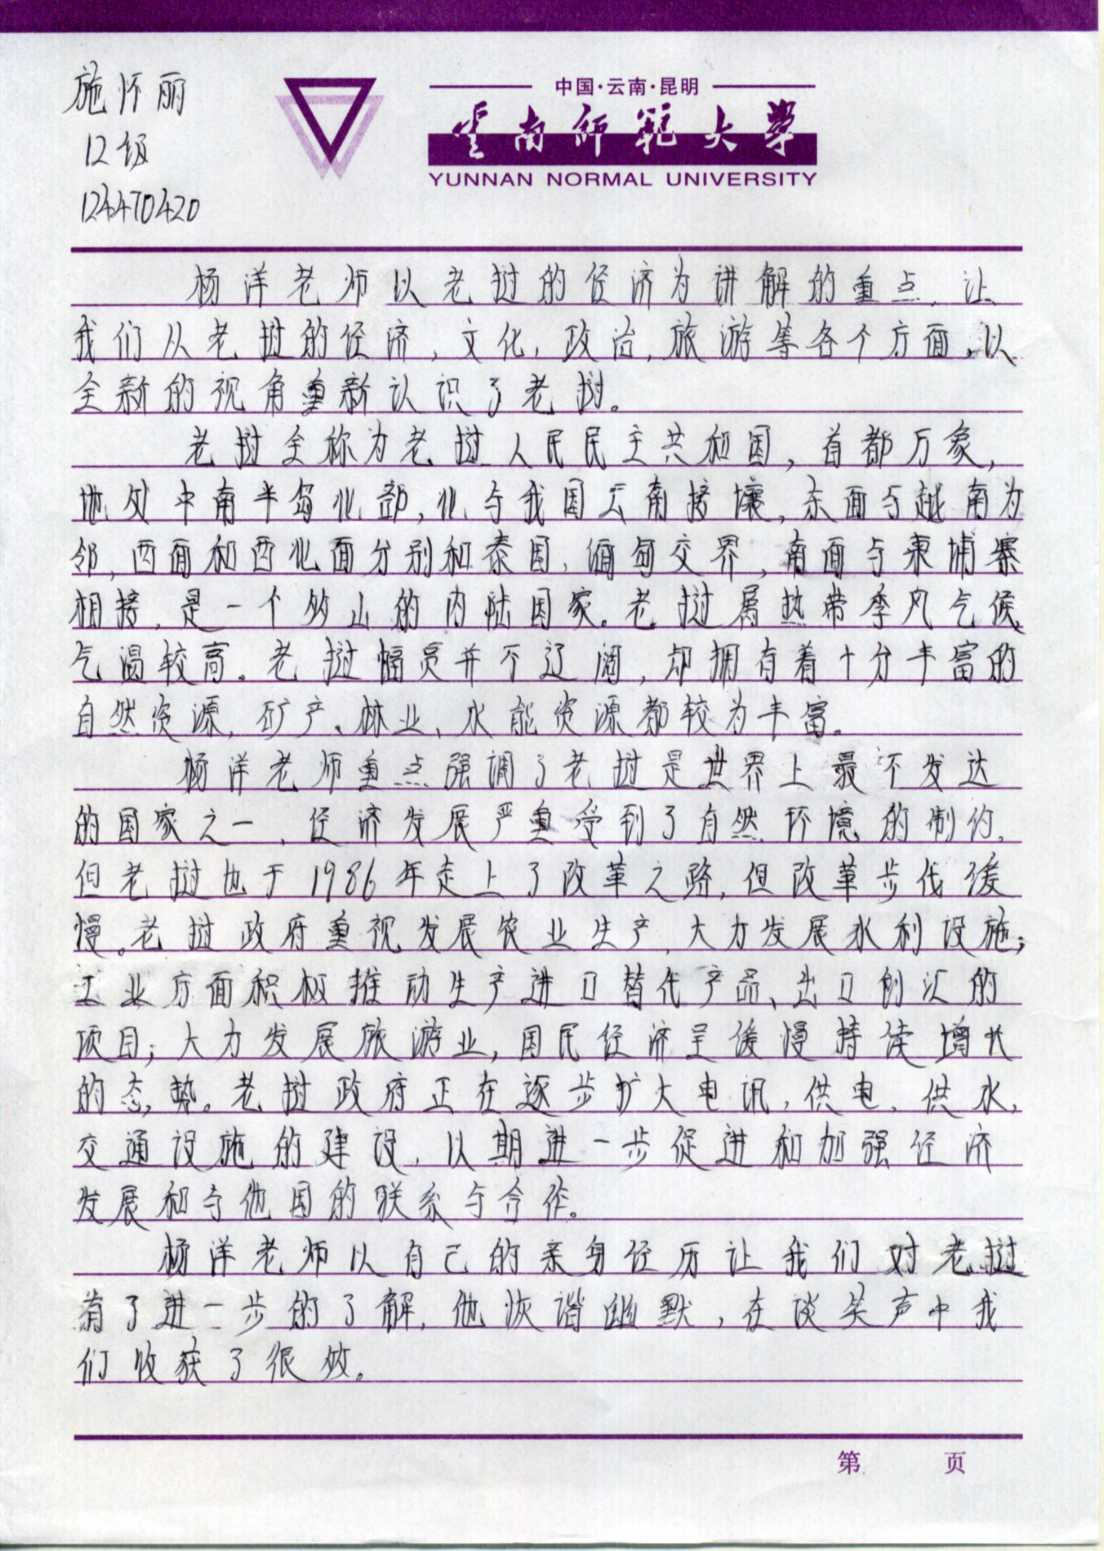 施怀丽
12级
124470420
中国·云南·昆明
云南师范大学
YUNNAN NORMAL UNIVERSITY
杨洋老师以老挝的经济为讲解的重点,让
我们从老挝的经济,文化,政治,旅游等各个方面,以
全新的视角重新认识了老挝。
老挝全称为老挝人民民主共和国,首都万象,
地处中南半岛北部,北与我国云南接壤,东面与越南为
邻,西面和西北面分别和泰国,缅甸交界,南面与柬埔寨
相接,是一个多山的内陆国家。老挝属热带季风气候
气温较高。老挝幅员并不辽阔,却拥有着十分丰富的
自然资源,矿产、林业、水能资源都较为丰富。
杨洋老师重点强调了老挝是世界上最不发达
的国家之一,经济发展严重受到了自然环境的制约,
但老挝也于1986年走上了改革之路,但改革步伐缓
慢。老挝政府重视发展农业生产,大力发展水利设施;
工业方面积极推动生产进口替代产品、出口创汇的
项目;大力发展旅游业,国民经济呈缓慢持续增长
的态势。老挝政府正在逐步扩大电讯,供电,供水,
交通设施的建设,以期进一步促进和加强经济
发展和与他国的联系与合作。
杨洋老师以自己的亲身经历让我们对老挝
有了进一步的了解,他诙谐幽默,在谈笑声中我
们收获了很多。
第 页